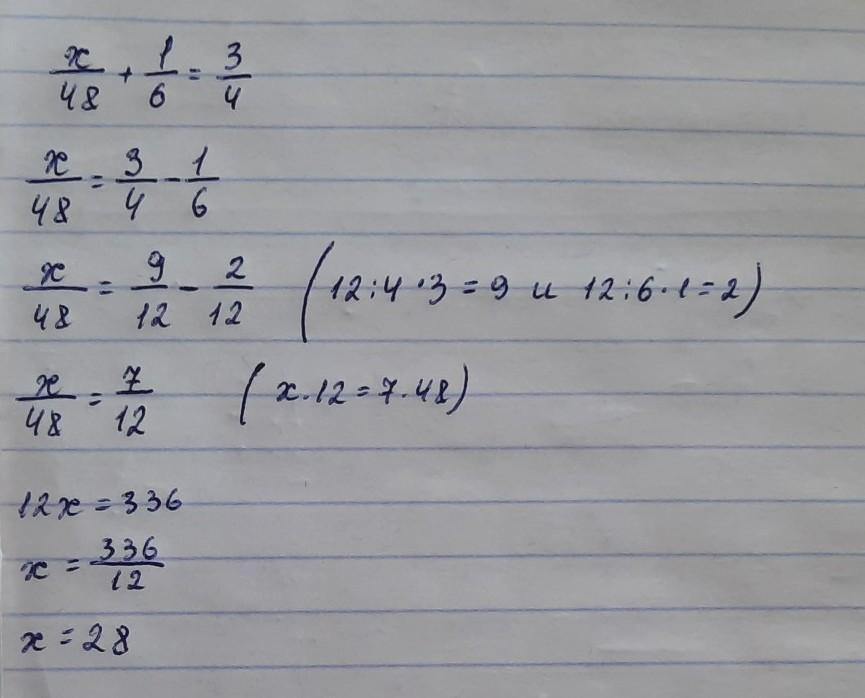 x/48 + 1/6 = 3/4
x/48 = 3/4 - 1/6
x/48 = 9/12 - 2/12 (12:4·3=9 и 12:6·1=2)
x/48 = 7/12 (x·12=7·48)
12x = 336
x = 336/12
x = 28